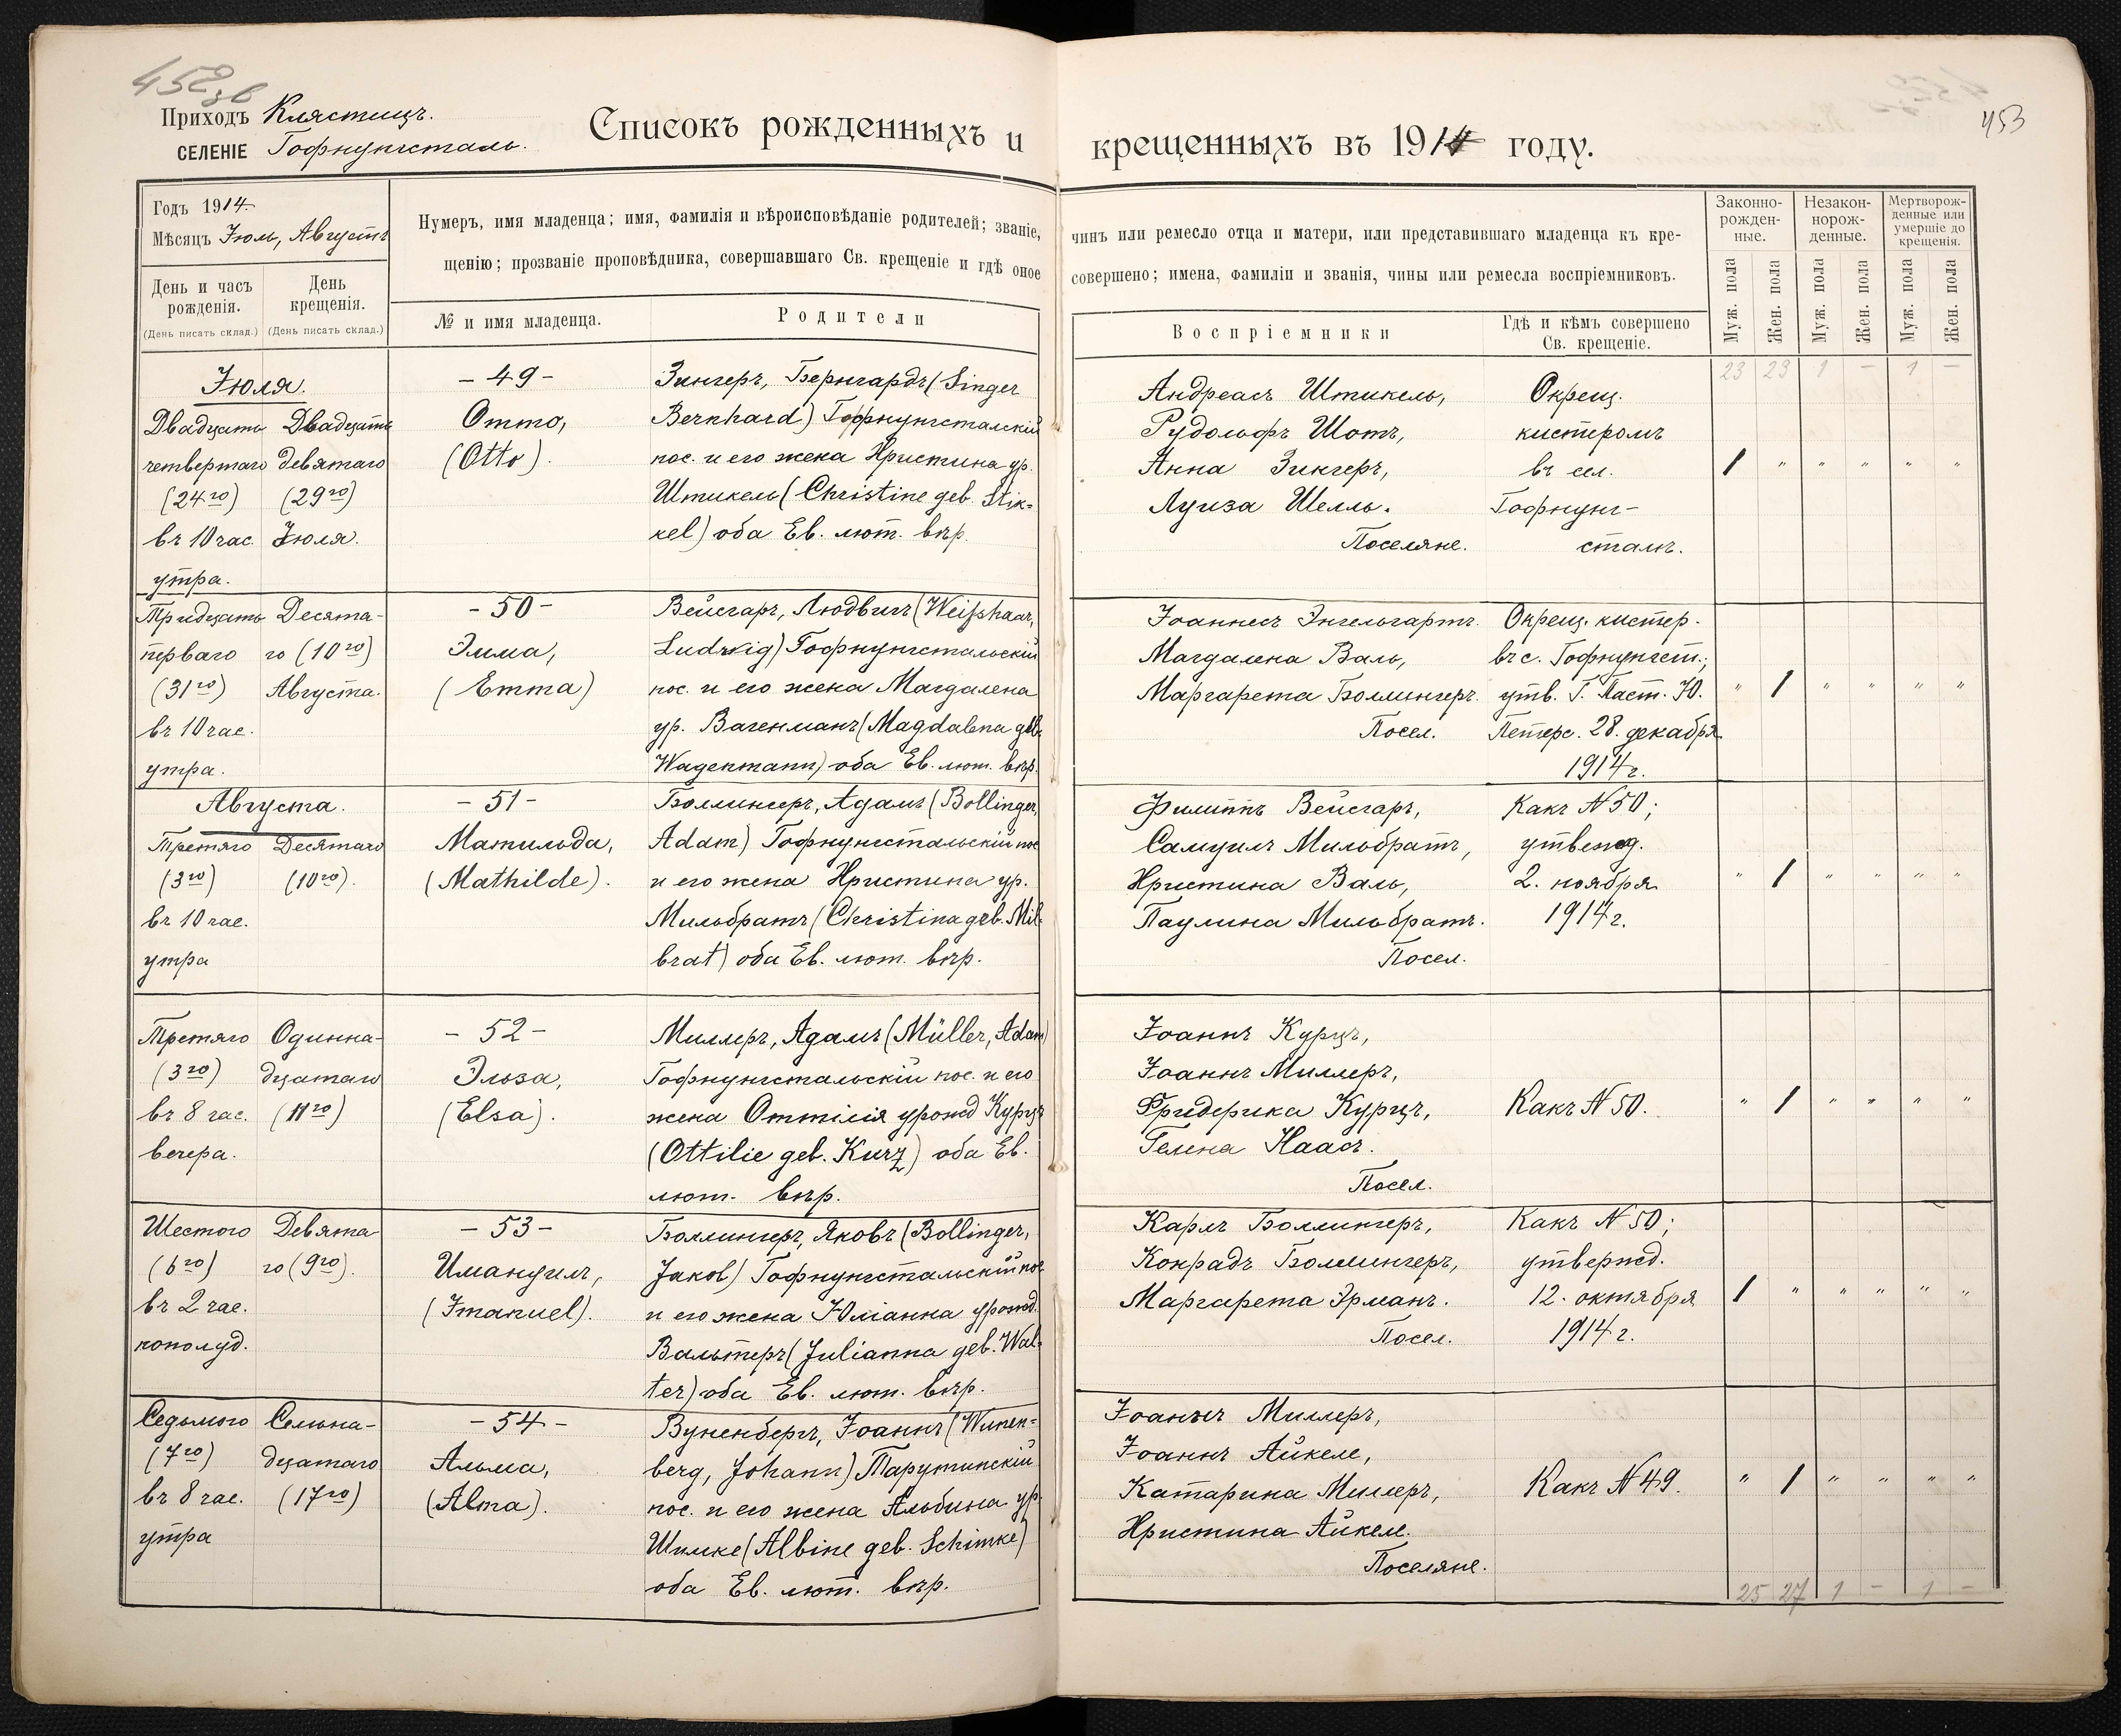 452 об
453
Приходъ Клястицъ.
СЕЛЕНІЕ Гофнунгсталь.
Списокъ рожденныхъ и крещенныхъ въ 1914 году.
Годъ 1914.
Мѣсяцъ Іюль, Августъ
День и часъ рожденія.
(День писать склад.)
День крещенія.
(День писать склад.)
Нумеръ, имя младенца; имя, фамилія и вѣроисповѣданіе родителей; званіе, чинъ или ремесло отца и матери, или представившаго младенца къ кре-
щенію; прозваніе проповѣдника, совершавшаго Св. крещеніе и гдѣ оное совершено; имена, фамиліи и званія, чины или ремесла воспріемниковъ.
№ и имя младенца.
Родители
Воспріемники
Гдѣ и кѣмъ совершено
Св. крещеніе.
Законно-
рожден-
ные.
Незакон-
норож-
денные.
Мертворож-
денные или
умершіе до
крещенія.
Муж. пола
Жен. пола
Муж. пола
Жен. пола
Муж. пола
Жен. пола
23 23 1 — 1 —
Іюля.
Двадцать
четвертаго
(24го)
въ 10 час.
утра.
Двадцать
девятаго
(29го)
Іюля.
- 49 -
Отто,
(Otto).
Зингеръ, Бернгардъ (Singer
Bernhard) Гофнунгсталскій
пос. и его жена Христина ур.
Штикель (Christine geb. Stik-
kel) оба Ев. лют. вѣр.
Андреасъ Штикель,
Рудольфъ Шотъ,
Анна Зингеръ,
Луиза Шелль.
Поселяне.
Окрещ.
кистеромъ
въ сел.
Гофнунг-
сталъ.
1 " " " " "
Тридцать
перваго
(31го)
въ 10 час.
утра.
Десята-
го (10го)
Августа.
- 50 -
Эмма,
(Emma)
Вейсгаръ, Людвигъ (Weißhaar,
Ludwig) Гофнунгстальскій
пос. и его жена Магдалена
ур. Вагенманъ (Magdalena geb.
Wagenmann) оба Ев. лют. вѣр.
Іоаннесъ Энгельгартъ.
Магдалена Валь,
Маргарета Боллингеръ.
Посел.
Окрещ. кистер.
въ с. Гофнунгст.;
утв. Г. Паст. Ю.
Петерс. 28. декабря
1914 г.
" 1 " " " "
Августа.
Третяго
(3го)
въ 10 час.
утра
Десятаго
(10го).
- 51 -
Матильда,
(Mathilde).
Боллингеръ, Адамъ (Bollinger,
Adam) Гофнунгстальскій пос
и его жена Христина ур.
Мильбратъ (Christina geb. Mil-
brat) оба Ев. лют. вѣр.
Филиппъ Вейсгаръ,
Самуилъ Мильбратъ,
Христина Валь,
Паулина Мильбратъ.
Посел.
Какъ N 50;
утвежд.
2. ноября
1914 г.
" 1 " " " "
Третяго
(3го)
въ 8 час.
вечера.
Одинна-
дцатаго
(11го)
- 52 -
Эльза,
(Elsa).
Миллеръ, Адамъ (Müller, Adam)
Гофнунгстальскій пос. и его
жена Оттилія урожд Курцъ
(Ottilie geb. Kurz) оба Ев.
лют. вѣр.
Іоаннъ Курцъ,
Іоаннъ Миллеръ,
Фридерика Курцъ,
Гелена Хаасъ.
Посел.
Какъ N 50.
" 1 " " " "
Шестого
(6го)
въ 2 час.
пополуд.
Девята-
го (9го).
- 53 -
Имануилъ,
(Imanuel).
Боллингеръ, Яковъ (Bollinger,
Jakob) Гофнунгстальскій пос
и его жена Юліанна урожд.
Вальтеръ (Julianna geb. Wal-
ter) оба Ев. лют. вѣр.
Карлъ Боллингеръ,
Конрадъ Боллингеръ,
Маргарета Эрманъ.
Посел.
Какъ N 50;
утвержд.
12. октября
1914 г.
1 " " " " "
Седьмого
(7го)
въ 8 час.
утра
Семьна-
дцатаго
(17го)
- 54 -
Альма,
(Alma).
Вуненбергъ, Іоаннъ (Wunen-
berg, Johann) Тарутинскій
пос. и его жена Альбина ур
Шимке (Albine geb. Schimke)
оба Ев. лют. вѣр.
Іоаннъ Миллеръ,
Іоаннъ Айкеле,
Катарина Миллеръ,
Христина Айкеле.
Поселяне.
Какъ N 49.
" 1 " " " "
25 27 1 — 1 —